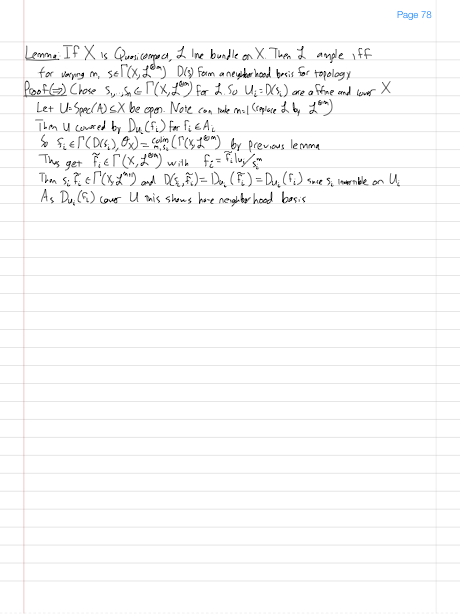 Page 78
Lemma: If X is Quasicompact, ℒ line bundle on X. Then ℒ ample iff
for varying m, s∈Γ(X,ℒ^{⊗m}) D(s) form a neighborhood basis for topology
Proof(⇒) Chose s₁,..,sₙ ∈ Γ(X,ℒ^{⊗m}) for ℒ. So Uᵢ=D(sᵢ) are affine and cover X
Let U=Spec(A)⊆X be open. Note can take m=1 (replace ℒ by ℒ^{⊗m})
Then U covered by D_{Uᵢ}(fᵢ) for fᵢ∈Aᵢ
So fᵢ∈Γ(D(sᵢ),O_X)=colim_{m,sᵢ}(Γ(X,ℒ^{⊗m}) by previous lemma
Thus get f̃ᵢ∈Γ(X,ℒ^{⊗m}) with fᵢ=f̃ᵢ|_{Uᵢ}/sᵢ^m
Then sᵢf̃ᵢ∈Γ(X,ℒ^{m+1}) and D(sᵢf̃ᵢ)=D_{Uᵢ}(f̃ᵢ)=D_{Uᵢ}(fᵢ) since sᵢ invertible on Uᵢ
As D_{Uᵢ}(fᵢ) cover U this shows have neighborhood basis